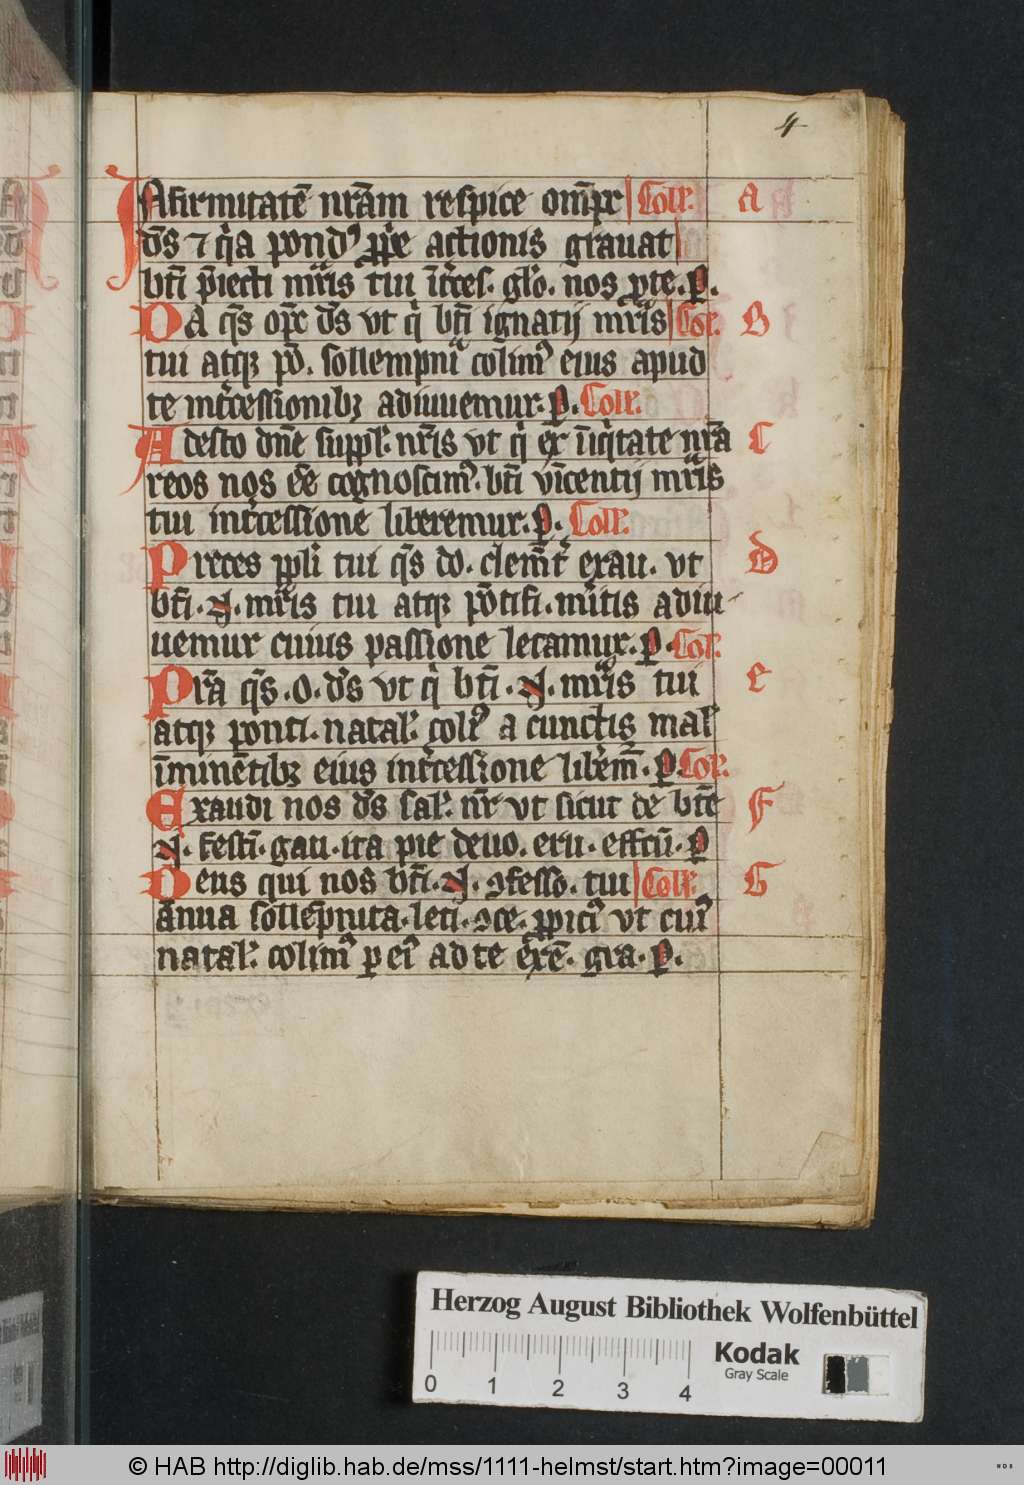 4
INfirmitatē nrām respice om̄ps Coll'. A
ds̄ ⁊ q̇a pond' ꝓpͤe actionis grauat
bt̄i p̄iecti mr̄is tui īt'ces. glo. nos ꝓte. p.
DA qs̄ op̄s ds̄ vt q̇ bt̄i ignatij mr̄is Col'. B
tui atqꝫ pō. sollempnia colim' eius apud
te int'cessionibꝫ adiuuemur. p. Coll'.
Adesto dn̄e suppl'. nr̄is vt q̇ ex īiq̇tate nr̄a C
reos nos ēē cognoscim'. bt̄i vīcentij mr̄is
tui int'cessione liberemur. p. Coll'.
Preces ppl'i tui qs̄ do. clemēt' exau. vt D
bt̄i. N. mr̄is tui atqꝫ pōtifi. mītis adiu
uemur cuius passione letamur. p. Col'.
Prā qs̄. o. ds̄ vt q̇ bt̄i. N. mr̄is tui e
atqꝫ ponti. natal'. col' a cunctis mal'
īminētibꝫ eius int'cessione lib'em̄. p. Col'.
Exaudi nos ds̄ sal'. nr̄ vt sicut de bt̄e F
N. festi. gau. ita pie deuo. eru. effctū. p
Deus qui nos bt̄i. N. ꝯfesso. tui Coll'. G
ānua sollēpnita. leti. ꝯce. ꝓpici' vt cui'
natal'. colim' p ei' ad te exē. gra. p.
Herzog August Bibliothek Wolfenbüttel
Kodak
Gray Scale
0 1 2 3 4
© HAB http://diglib.hab.de/mss/1111-helmst/start.htm?image=00011